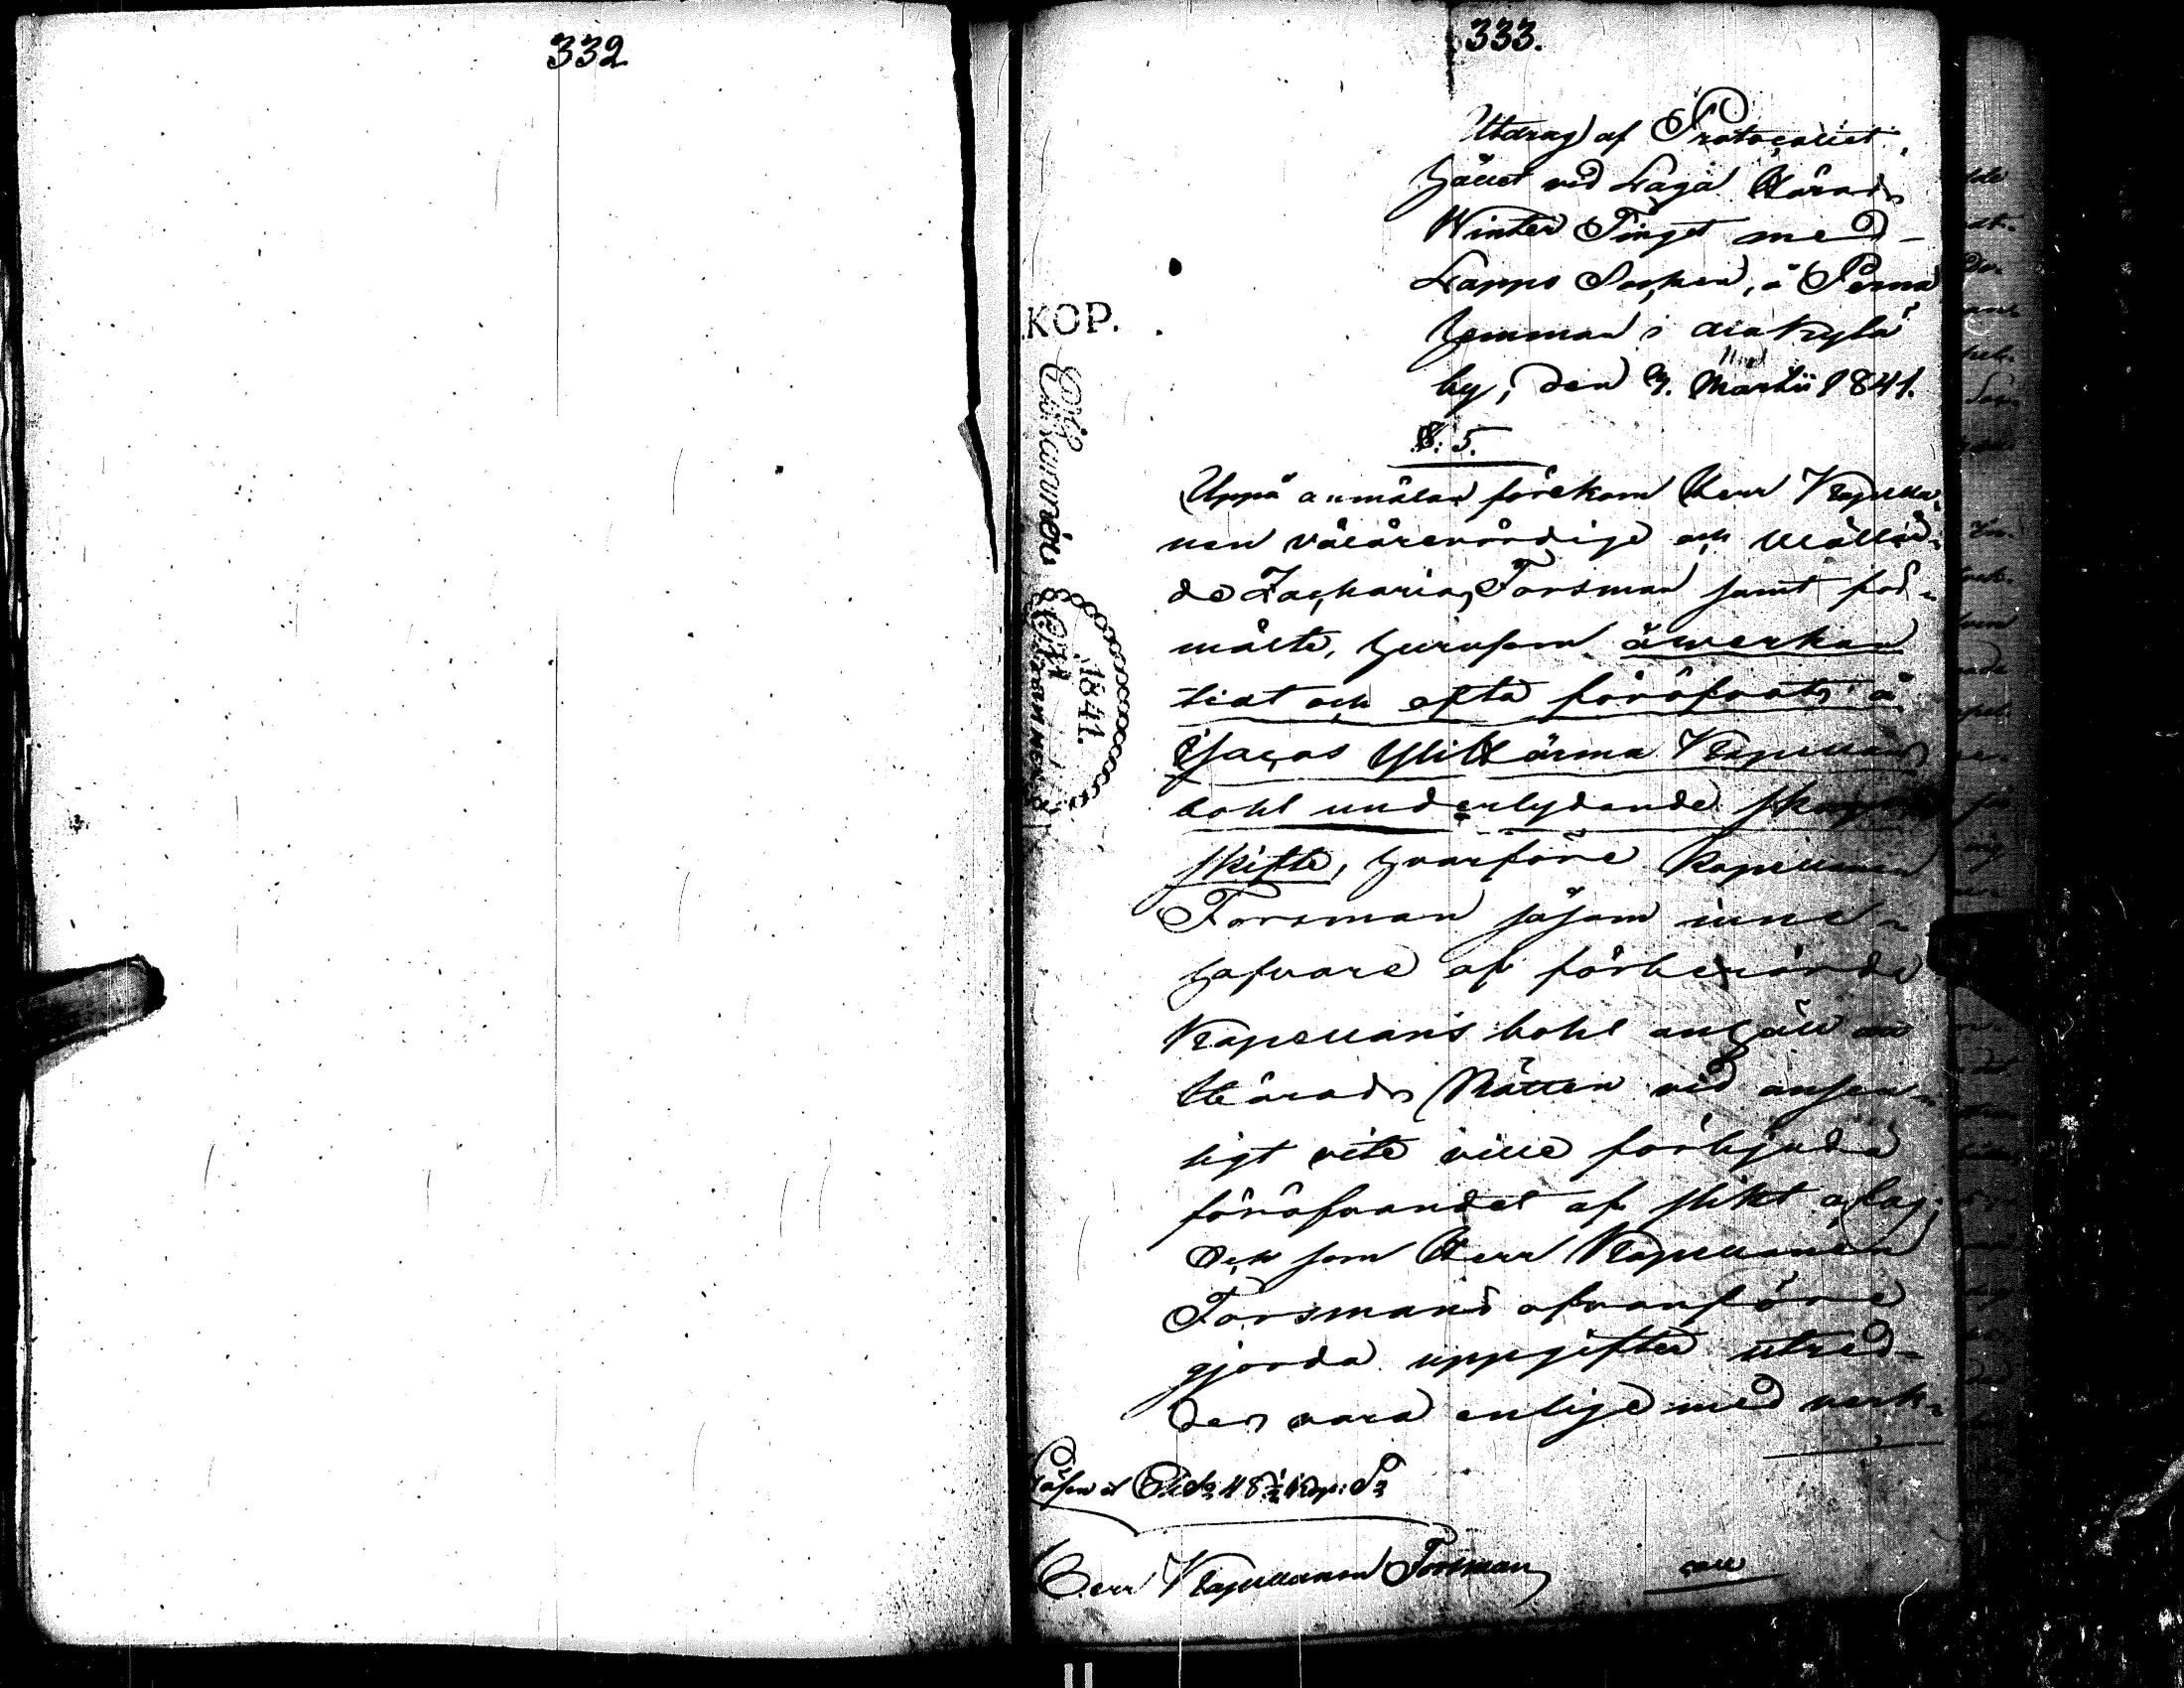 332
333.
Utdrag af Protocollet,
hållet vid Laga Härads
Winter Tinget med
Lappo Socken, å Perna
hemman i Liakylä
by, den 9. Martii 1841.
§. 5.
Uppå anmälan förekom Herr Kapella-
nen välärevördige och Wällär-
de Zacharias Forsman samt för-
mälte, hurusom åwerkan
tidt och ofta föröfvats å
Ylihärma Kapellans
bohl underlydande skogs
skifte, hvarföre Kapellanen
Forsman såsom inne-
hafvare af förberörde
Kapellans bohl anhöll att
Härads Rätten vid ansen-
ligt vite ville förbjuda
föröfvandet af slikt oskag;
Och som Herr Kapellanen
Forsmans ofvanföre
gjorda uppgifter utred-
des vara enlige med verk-
Lösen
Herr Kapellanen Forsman
KOP.
1841.